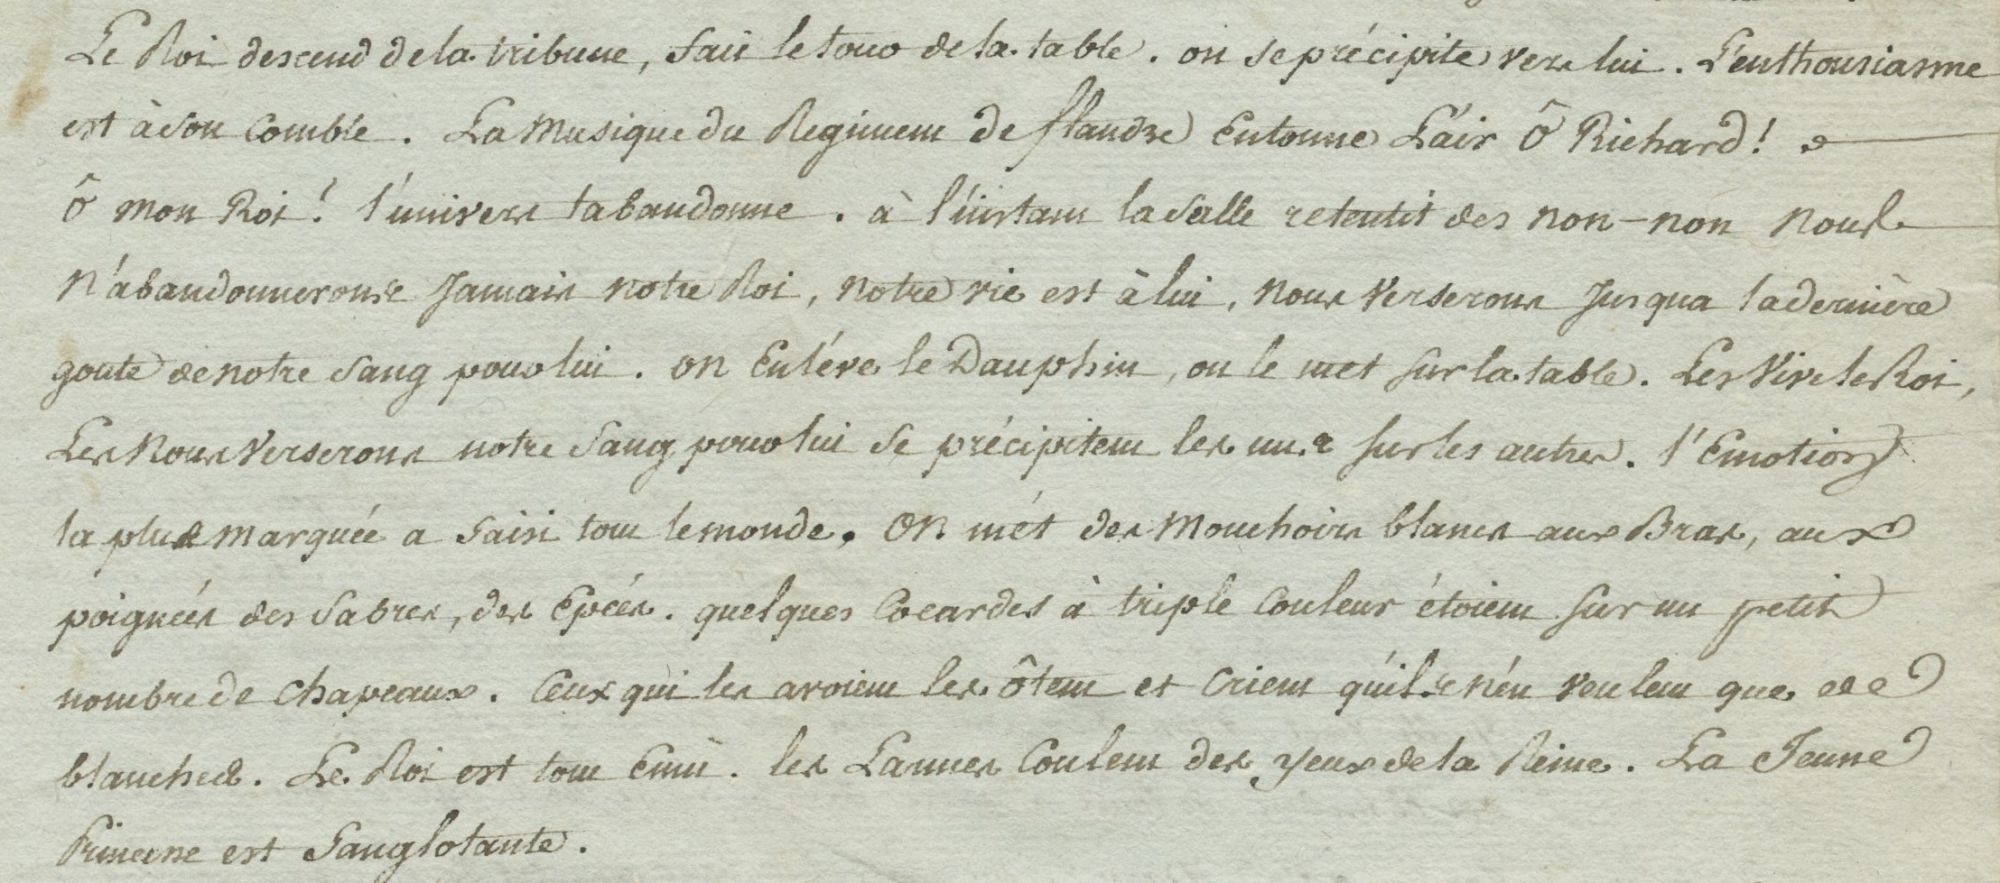 Le Roi descend de la tribune, fait le tour de la table. on se précipite vers lui. L'enthousiasme
est à son Comble. La Musique du Regiment de flandre Entonne L'air Ô Richard!
Ô mon Roi! l'univers tabandonne. à l'instant la Salle retentit des non-non nous
N'abandonnerons Jamais notre Roi, notre vie est à lui, nous Verserons Jusqua la dernière
goute de notre Sang pour lui. on Enléve le Dauphin, on le met sur la table. Les Vive le Roi,
Les Nous Verserons notre Sang pour lui Se précipitent les uns sur les autres. l'Emotion
la plus marquée a Saisi tout le monde. On mét des Mouchoirs blancs aux Bras, aux
poignées des Sabres, des Epées. quelques Cocardes à triple Couleur étoient sur un petit
nombre de Chapeaux. Ceux qui les avoient les ôtent et Crient qu'ils n'én veulent que de
blanches. Le Roi est tout Emû. les Larmes Coulent des yeux de la Reine. La Jeune
Princesse est Sanglotante.